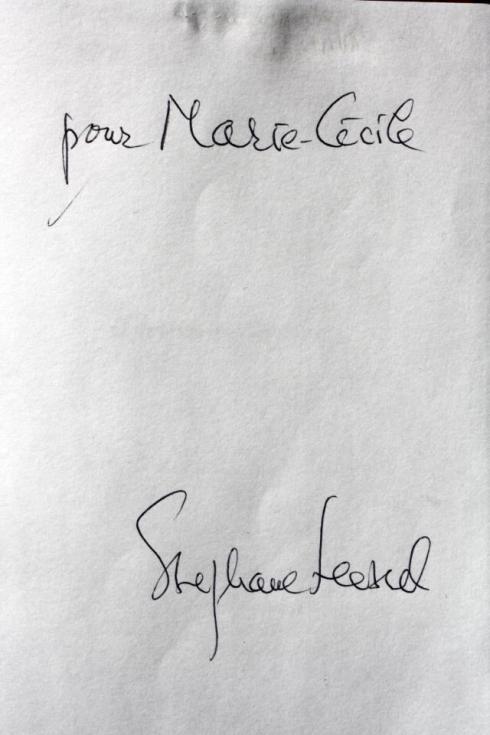 pour Marie-Cécile
Stéphane Hessel